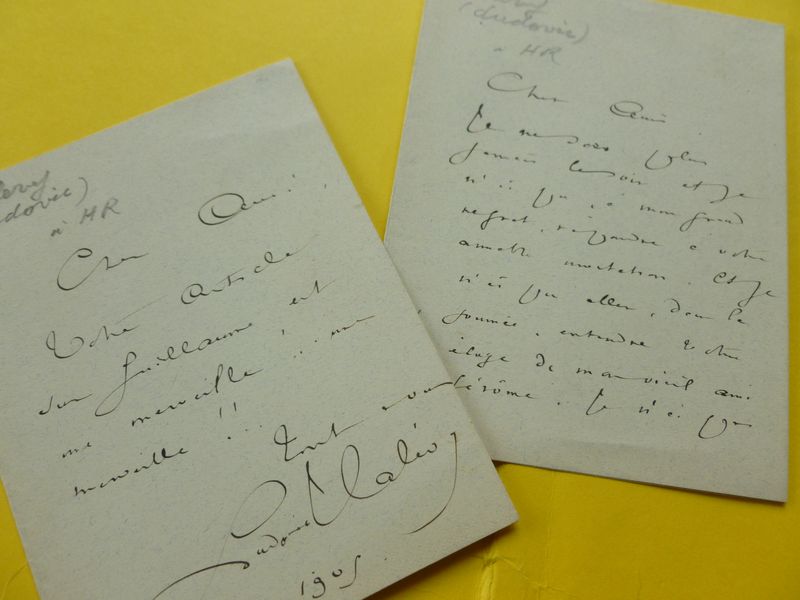 (Ludovic)
à HR
Cher Ami,
Votre article
sur Guillaume est
une merveille, une
merveille !!
Tout à vous
Ludovic Halévy
1905.
(Ludovic)
à HR
Cher Ami,
Je ne sors plus
jamais le soir et je
n'ai pu, à mon grand
regret, répondre à votre
aimable invitation. Et je
n'ai pu aller, dans la
journée, entendre votre
éloge de mon vieil ami
Gérôme. Je n'ai pu